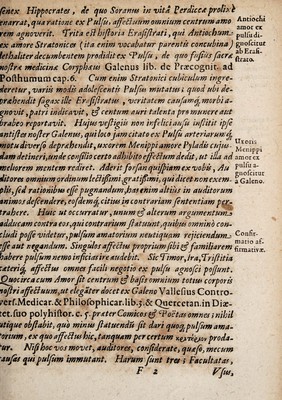 senex Hippocrates, de quo Soranus in vitâ Perdicæ prolixè
enarrat, quâ ratione ex Pulsu, affectum omnium centrum amo
rem agnoverit. Trita est historia Erasistrati, qui Antiochum
ex amore Stratonices (ita enim vocabatur parentis concubina)
lethaliter decumbentem prodidit ex Pulsu, de quo fusius sacræ
nostræ medicinæ Coryphæus Galenus lib. de Præcognit. ad
Posthumum cap. 6. Cum enim Stratonices cubiculum ingre-
deretur, variis modis adolescentis Pulsus mutatus; quod ubi de-
præhendit sagax ille Erasistratus, veritatem causamq́; morbi a-
gnovit, patri indicavit, & centum auri talenta pro munere aut
præbeo reportavit. Hujus vestigiis non infeliciter insistit ipse
antistes noster Galenus, qui loco jam citato ex Pulsu arteriarum q́;
motu diverso depræhendit, uxorem Menippi amore Pyladis cujus-
dam detineri, unde consilio certo adhibito effectum dedit, ut illa ad
meliorem mentem rediret. Aderit forsan quispiam ex vobis, Au
ditores omnium ordinum lectissimi, gratissimi, qui dicet non exem-
plis, sed rationibus esse pugnandum, has enim altius in auditorum
animos descendere, eosdemq́; citius in contrariam sententiam per-
trahere. Huic ut occurratur, unum & alterum argumentum
adducam contra eos, qui contrarium statuunt, quibus omninò con-
cludi posse videtur, pulsum amatorium neutiquam rejiciendum
esse aut negandum. Singulos affectus proprium sibi & familiarem
habere pulsum nemo inficiari audebit. Sic Timor, Ira, Tristitia
cæteriq́; affectus omnes facili negotio ex pulsu agnosci possunt.
Quocirca cum Amor sit centrum & basis omnium totius corporis
nostri affectuum, ut eleganter docet ex Galeno Vallesius Contro-
vers. Medicar. & Philosophicar. lib. 3. & Quercetan. in Diæ-
tet. suo polyhistor. c. 5. præter Comicos & Poëtas omnes: nihil
utique obstabit, quò minus statuendum sit dari quoq́; pulsum ama-
torium, ex quo affectus hic, tanquam per certum
datur. Nisi hoc vos movet, auditores, considerate, quæso, mecum
causas qui pulsum immutant. Harum sunt tres; Facultates,
F 2 Vsus,
Antiochi
amor ex
pulsu di-
gnoscitur
ab Erasi-
strato.
Uxoris
Menippi
amor ex
pulsu a-
gnoscitur
à Galeno.
Confir-
matio af-
firmativæ.